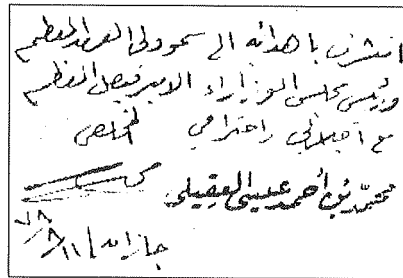 اتشرف باهدائه الى سمو ولي العهد المعظم
ورئيس مجلس الوزراء الامير فيصل المعظم
مع اجلالي واحترامي المخلص
محمد بن أحمد عيسى العقيلي
جازان